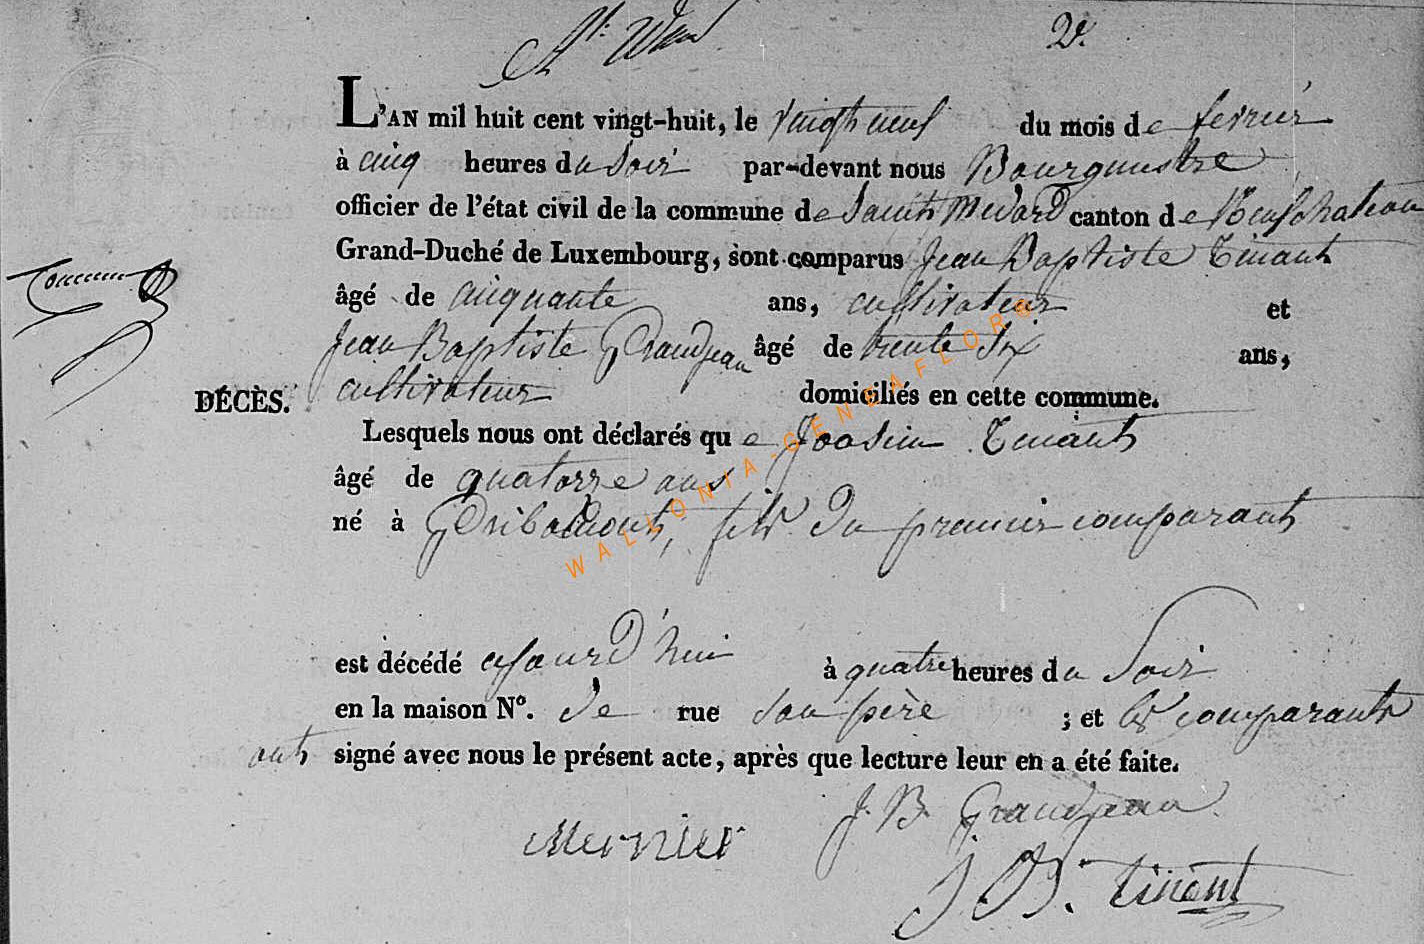 2e.
L'AN mil huit cent vingt-huit, le vingt neuf du mois de fevrier
à cinq heures du soir par-devant nous Bourgmestre
officier de l'état civil de la commune de Saint Medard canton de Neufchateau
Grand-Duché de Luxembourg, sont comparus Jean Baptiste Tinant
âgé de cinquante ans, cultivateur et
Jean Baptiste Grandjean âgé de trente six ans,
cultivateur domiciliés en cette commune.
DÉCÈS.
Lesquels nous ont déclarés que Joasim Tinant
âgé de quatorze ans
né à Gribomont, fils du premier comparant
est décédé aujourd'hui à quatre heures du soir
en la maison Nº. de rue son père ; et les comparants
ont signé avec nous le présent acte, après que lecture leur en a été faite.
J. B. Grandjean
Mernier
J. B. Tinant
WALLONIA-GENEAFLOR®